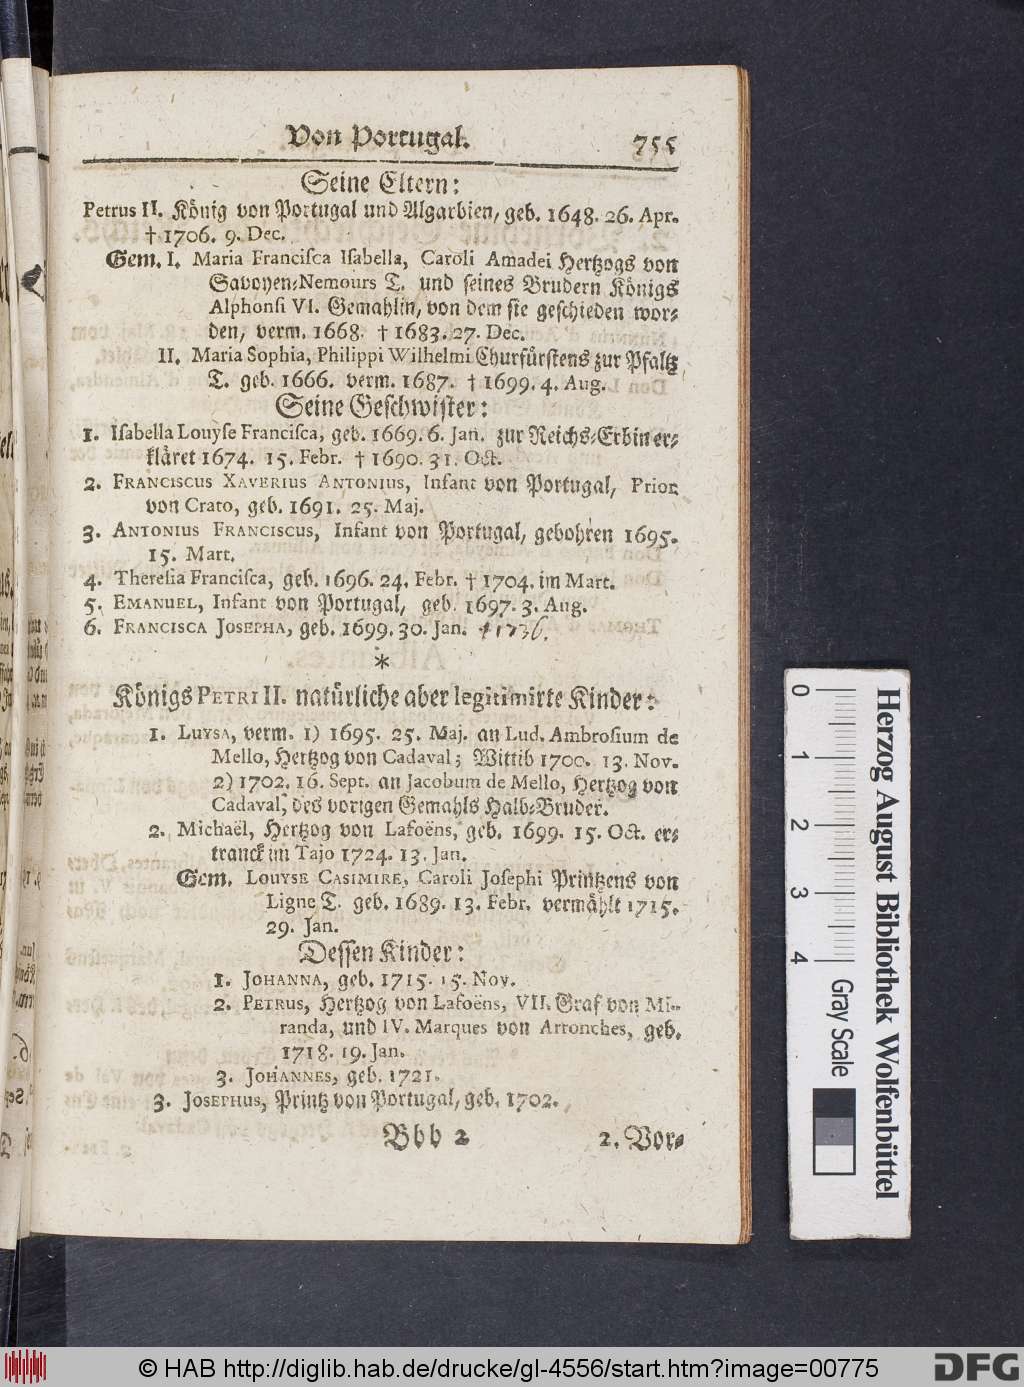 Von Portugal. 755
Seine Eltern:
Petrus II. König von Portugal und Algarbien, geb. 1648. 26. Apr.
† 1706. 9. Dec.
Gem. I. Maria Francisca Isabella, Caroli Amadei Hertzogs von
Savoyen-Nemours T. und seines Brudern Königs
Alphonsi VI. Gemahlin, von dem sie geschieden wor-
den, verm. 1668. † 1683. 27. Dec.
II. Maria Sophia, Philippi Wilhelmi Churfürstens zur Pfaltz
T. geb. 1666. verm. 1687. † 1699. 4. Aug.
Seine Geschwister:
1. Isabella Louyse Francisca, geb. 1669. 6. Jan. zur Reichs-Erbin er-
kläret 1674. 15. Febr. † 1690. 31. Oct.
2. FRANCISCUS XAVERIUS ANTONIUS, Infant von Portugal, Prior
von Crato, geb. 1691. 25. Maj.
3. ANTONIUS FRANCISCUS, Infant von Portugal, gebohren 1695.
15. Mart.
4. Theresia Francisca, geb. 1696. 24. Febr. † 1704. im Mart.
5. EMANUEL, Infant von Portugal, geb. 1697. 3. Aug.
6. FRANCISCA JOSEPHA, geb. 1699. 30. Jan. † 1736.
*
Königs PETRI II. natürliche aber legitimirte Kinder:
1. LUYSA, verm. 1) 1695. 25. Maj. an Lud. Ambrosium de
Mello, Hertzog von Cadaval; Wittib 1700. 13. Nov.
2) 1702. 16. Sept. an Jacobum de Mello, Hertzog von
Cadaval, des vorigen Gemahls Halb-Bruder.
2. Michaël, Hertzog von Lafoëns, geb. 1699. 15. Oct. er-
tranck im Tajo 1724. 13. Jan.
Gem. LOUYSE CASIMIRE, Caroli Josephi Printzens von
Ligne T. geb. 1689. 13. Febr. vermählt 1715.
29. Jan.
Dessen Kinder:
1. JOHANNA, geb. 1715. 15. Nov.
2. PETRUS, Hertzog von Lafoëns, VII. Graf von Mi-
randa, und IV. Marques von Arronches, geb.
1718. 19. Jan.
3. JOHANNES, geb. 1721.
3. JOSEPHUS, Printz von Portugal, geb. 1702.
Bbb 2 2. Vor-
0 1 2 3 4 Gray Scale
Herzog August Bibliothek Wolfenbüttel
© HAB http://diglib.hab.de/drucke/gl-4556/start.htm?image=00775
DFG